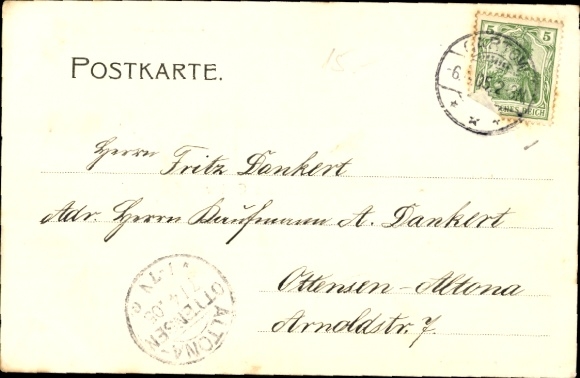 15.-
POSTKARTE.
5 5
GARTOW
-6. 05. 2-3N.
Herrn Fritz Dankert
Adr. Herrn Kaufmann A. Dankert
Ottensen-Altona
Arnoldstr. 7.
ALTONA
OTTENSEN